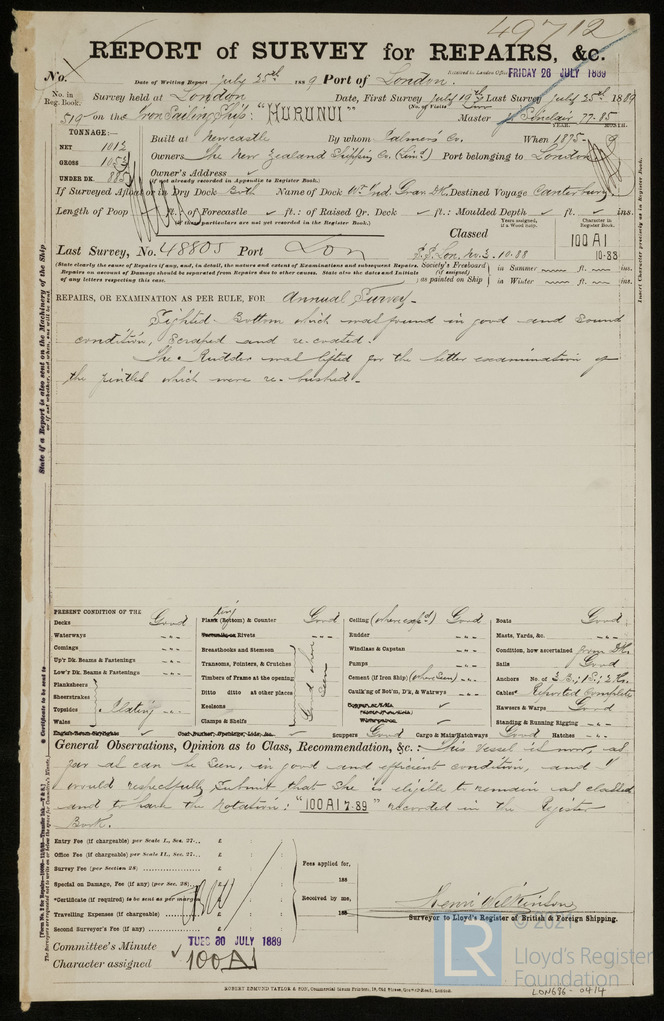 49712
REPORT of SURVEY for REPAIRS, &c.
No. Date of Writing Report July 25th 1889 Port of London. Received in London Office FRIDAY 26 JULY 1889
No. in Reg. Book. Survey held at London Date, First Survey July 19th Last Survey July 25th 1889
(No. of Visits)
519 on the Iron Sailing Ship "HURUNUI" Master J. Sinclair 77-85
YEAR. MONTH.
TONNAGE:—
NET 1012
GROSS 1053
UNDER DK.
Built at Newcastle By whom Palmers Co. When 1875-9
Owners The New Zealand Shipping Co. (Limd) Port belonging to London
Owner's Address
(if not already recorded in Appendix to Register Book.)
If Surveyed Afloat or in Dry Dock Both Name of Dock Destined Voyage Canterbury
Length of Poop ft.: of Forecastle ft.: of Raised Qr. Deck ft.: Moulded Depth ft. ins.
(If these particulars are not yet recorded in the Register Book.)
Years assigned, if a Wood Ship. Character in Register Book.
Classed 100 A1
Last Survey, No. 48805 Port Lon S.S. Lon. No. 3. 10.88 10-88
(State clearly the cause of Repairs if any, and, in detail, the nature and extent of Examinations and subsequent Repairs.
Repairs on account of Damage should be separated from Repairs due to other causes. State also the dates and Initials
of any letters respecting this case.
Society's Freeboard (if assigned) as painted on Ship in Summer ft. ins.
in Winter ft. ins.
REPAIRS, OR EXAMINATION AS PER RULE, FOR Annual Survey.
Sighted Bottom which was found in good and sound
condition, scraped and re-coated.
The Rudder was lifted for the better examination of
the pintles which were re-bushed.
PRESENT CONDITION OF THE
Decks Good
Waterways " "
Comings " "
Up'r Dk. Beams & Fastenings " "
Low'r Dk. Beams & Fastenings " "
Planksheers
Sheerstrakes
Topsides Plating " "
Wales
Plank (Bottom) & Counter Good
Rivets " "
Breasthooks and Stemson
Transoms, Pointers, & Crutches
Timbers of Frame at the opening
Ditto ditto at other places
Keelsons
Clamps & Shelfs
Good where seen
Ceiling (where exp'd) Good
Rudder " "
Windlass & Capstan " "
Pumps " "
Cement (if Iron Ship) (where seen) " "
Caulk'g of Bot'm, D'k, & Watrwys " "
Scuppers Good Cargo & Main Hatchways Good Hatches " "
Boats Good
Masts, Yards, &c. " "
Condition, how ascertained from Dk.
Sails Good
Anchors No. of 3 B.; 1 S.; 2 K.
Cables Reported Complete
Hawsers & Warps Good
Standing & Running Rigging " "
General Observations, Opinion as to Class, Recommendation, &c.: This vessel is now, as
far as can be seen, in good and efficient condition, and I
would respectfully submit that she is eligible to remain as classed
and to have the Notation: "100 A1 7.89" recorded in the Register
Book.
Entry Fee (if chargeable) per Scale I., Sec. 27... £ : :
Office Fee (if chargeable) per Scale II., Sec. 27... £ : :
Survey Fee (per Section 28) £ : :
Special on Damage, Fee (if any) (per Sec. 28) £ : :
*Certificate (if required) to be sent as per margin £ : :
Travelling Expenses (if chargeable) £ : :
Second Surveyor's Fee (if any) £ : :
Fees applied for,
188
Received by me,
188
Henri Wilkinson
Surveyor to Lloyd's Register of British & Foreign Shipping.
Committee's Minute TUES 30 JULY 1889
Character assigned 100 A1
ROBERT EDMUND TAYLOR & SON, Commercial Steam Printers, 19, Old Street, Goswell Road, London.
State if a Report is also sent on the Machinery of the Ship
Insert Character precisely as in Register Book.
© 2021
LR
Lloyd's Register
Foundation
LON696-0414